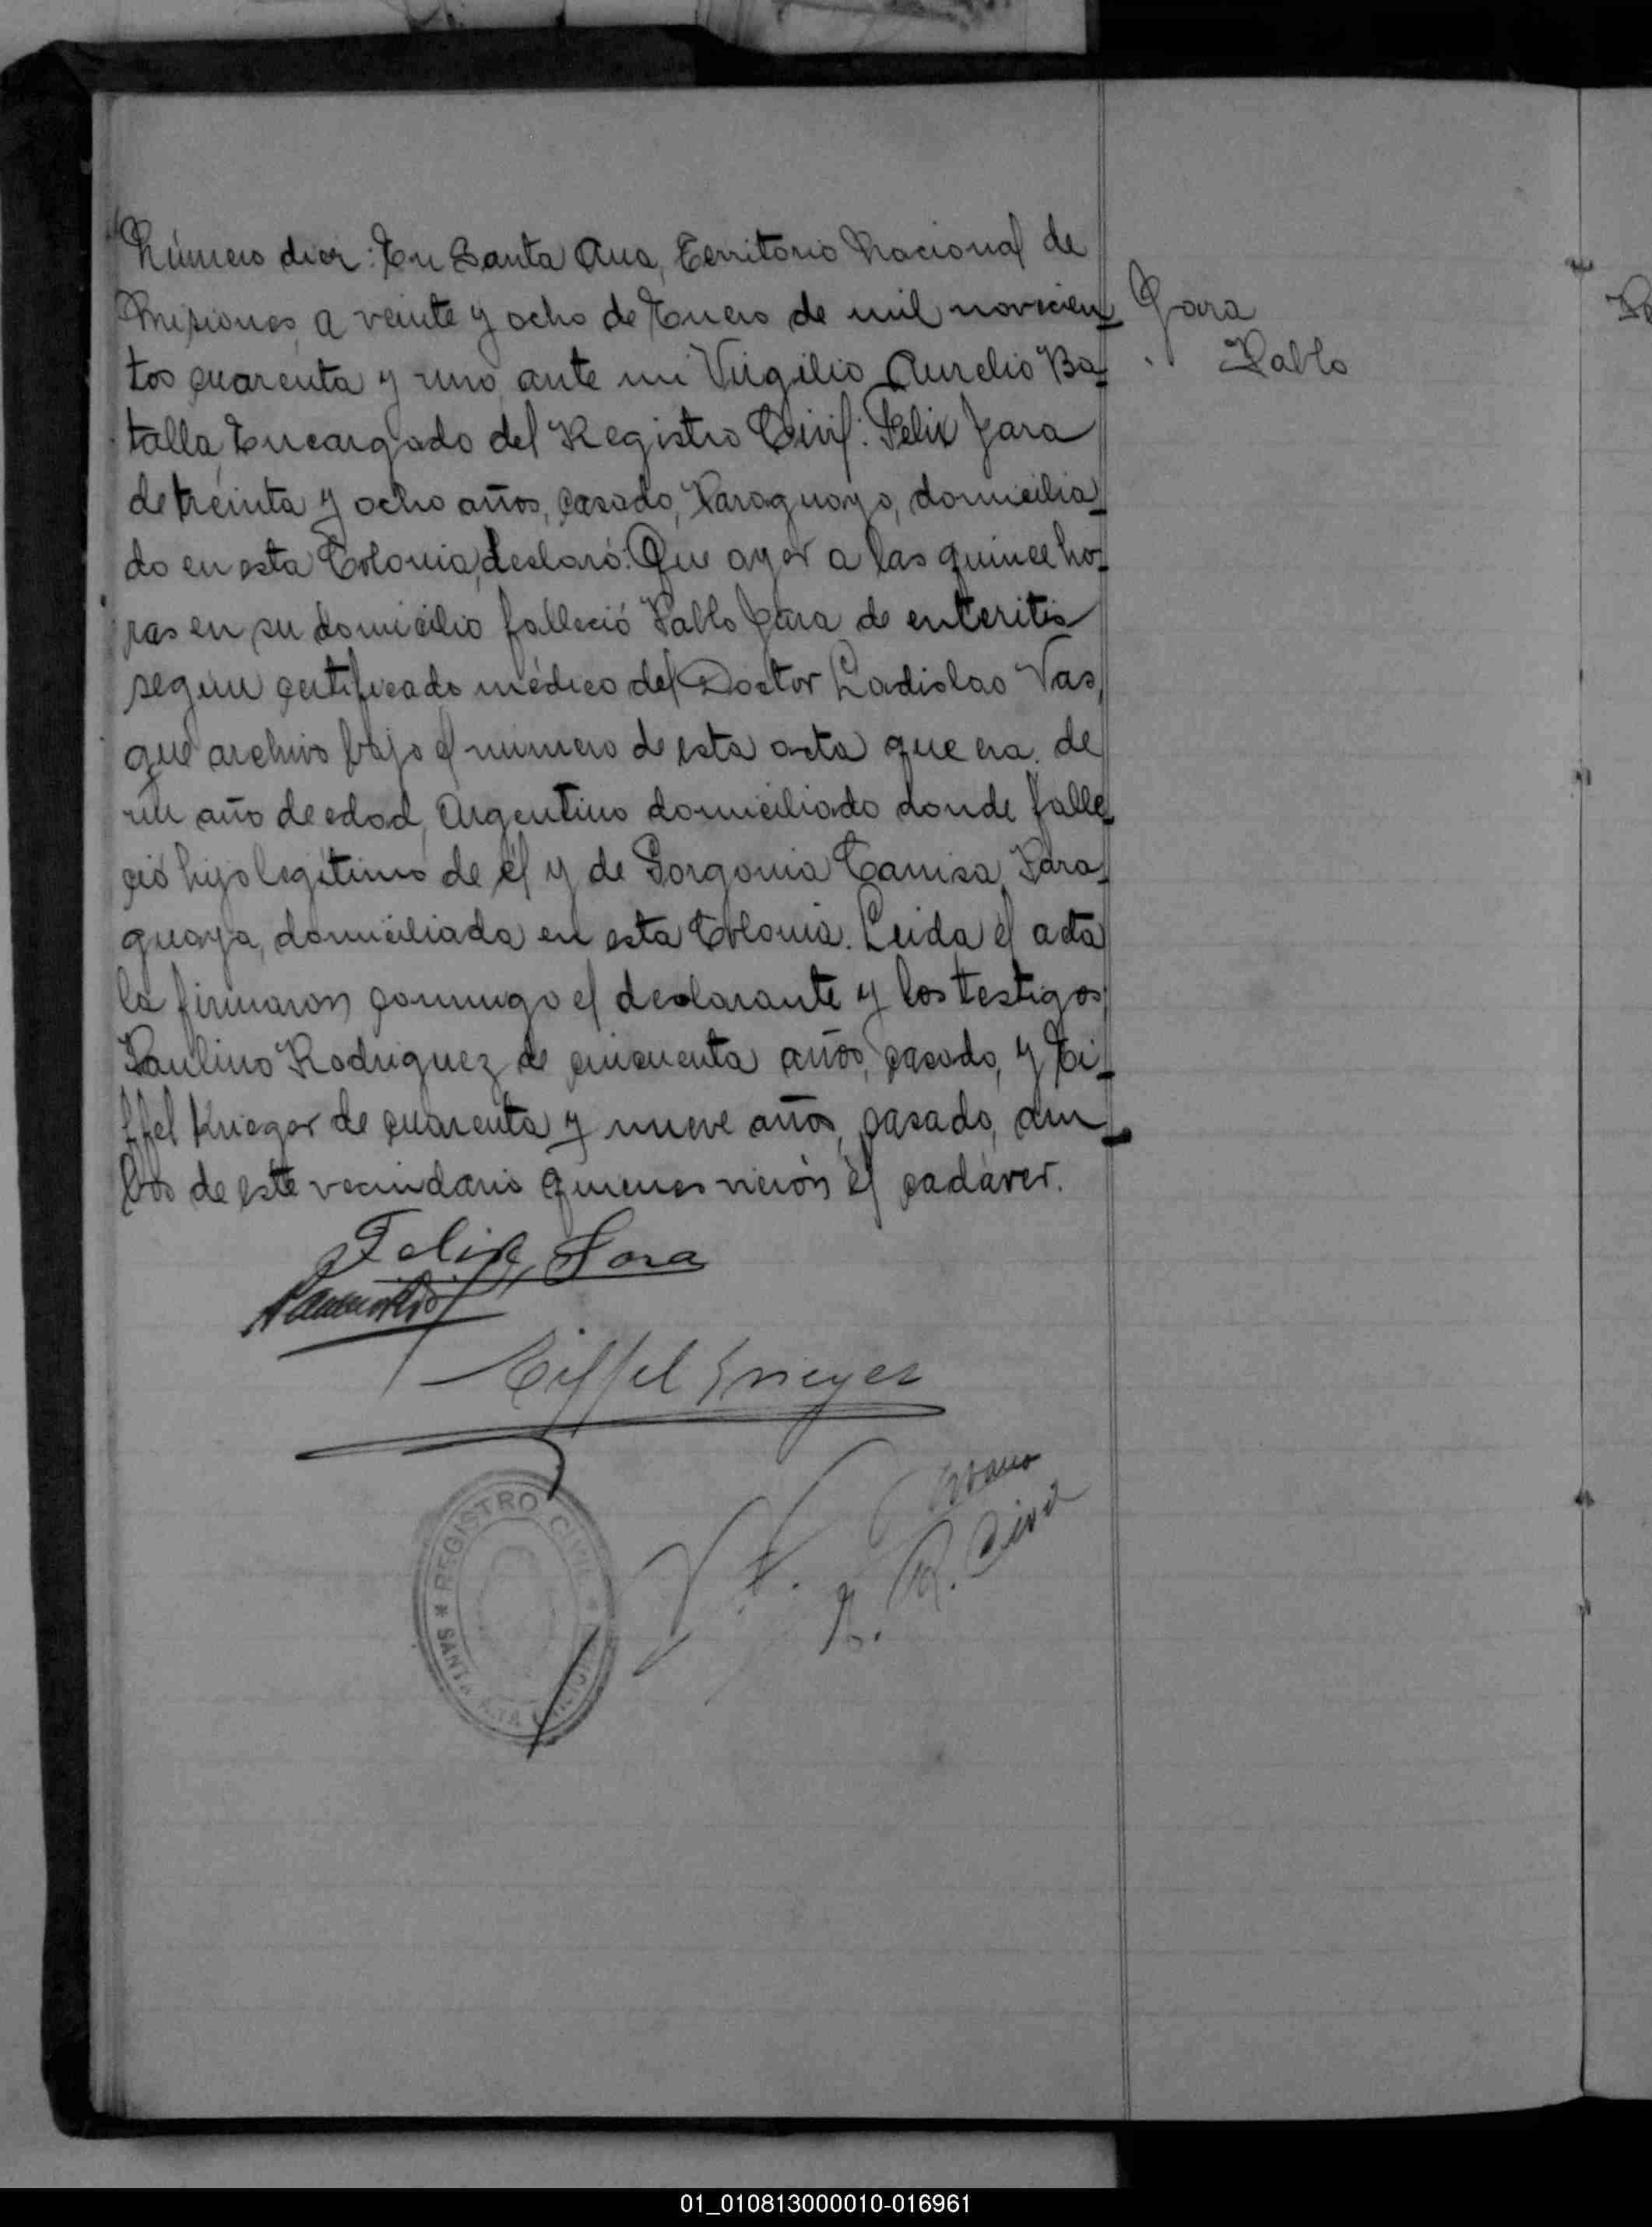 Número diez: En Santa Ana, Territorio Nacional de
Misiones, a veinte y ocho de Enero de mil novecien-
tos cuarenta y uno, ante mi Virgilio Aurelio Ba-
talla, Encargado del Registro Civil: Felix Jara
de treinta y ocho años, casado, Paraguayo, domicilia-
do en esta Colonia, declaró: Que ayer a las quince ho-
ras en su domicilio falleció Pablo Jara de enteritis
segun certificado médico del Doctor Ladislao Vas,
que archivo bajo el número de esta acta que era de
un año de edad, Argentino domiciliado donde falle-
ció hijo legítimo de él y de Gorgonia Canisa, Para-
guaya, domiciliada en esta Colonia. Leida el acta
la firmaron conmigo el declarante y los testigos;
Paulino Rodriguez de cincuenta años, casado, y Ei-
ffel Krieger de cuarenta y nueve años, casado, am-
bos de este vecindario quienes vierón el cadáver.
Jara
Pablo
Felix Jara
Eiffel Krieger
E. R. Civil
REGISTRO CIVIL
SANTA ANA
01_010813000010-016961